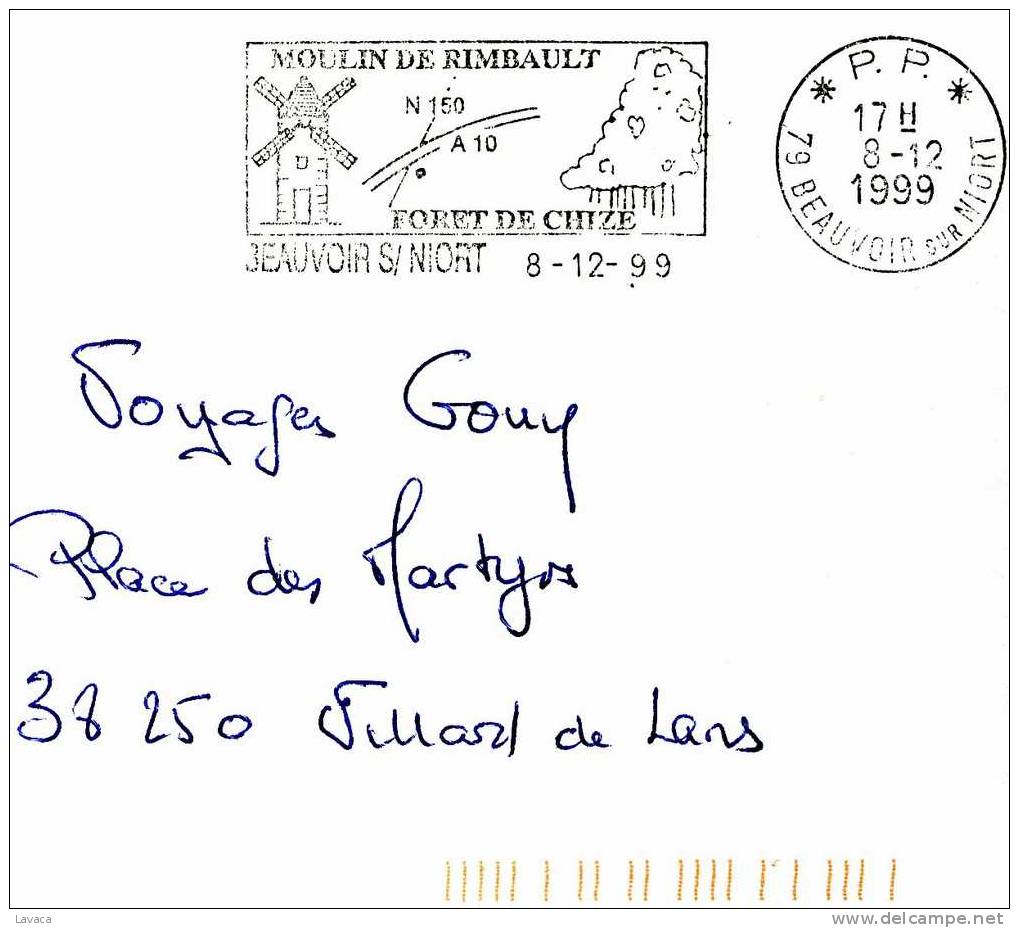 MOULIN DE RIMBAULT
N 150
A 10
FORET DE CHIZE
BEAUVOIR S/ NIORT 8-12-99
* P. P. *
17 H
8-12
1999
79 BEAUVOIR SUR NIORT
Voyages Gouy
Place des Martyrs
38 250 Villard de Lans
Lavaca
www.delcampe.net